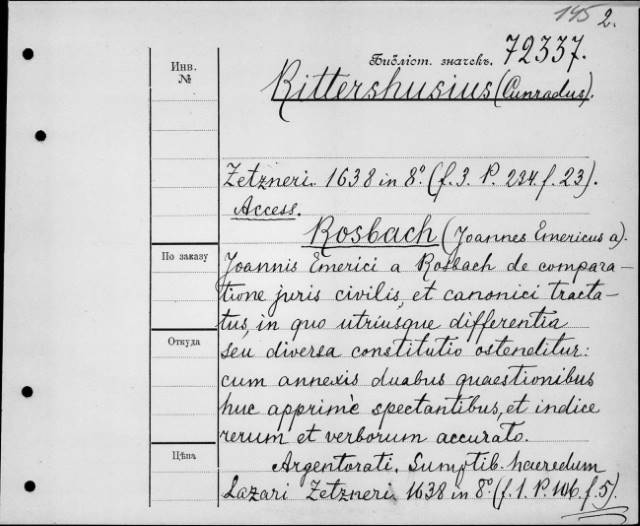 145 2.
Инв.
№
Библіот. значекъ. 72337.
Rittershusius (Cunradus).
Zetzneri. 1638 in 8º. (f. 3. P. 234. f. 23).
Access.
Rosbach (Joannes Emericus a).
По заказу
Joannis Emerici a Rosbach de compara-
tione juris civilis, et canonici tracta-
tus, in quo utriusque differentia
Откуда
seu diversa constitutio ostenditur:
cum annexis duabus quaestionibus
huc apprime spectantibus, et indice
rerum et verborum accurato.
Цѣна
Argentorati. Sumptib. haeredum
Lazari Zetzneri. 1638 in 8º. (f. 1. P. 106. f. 5).